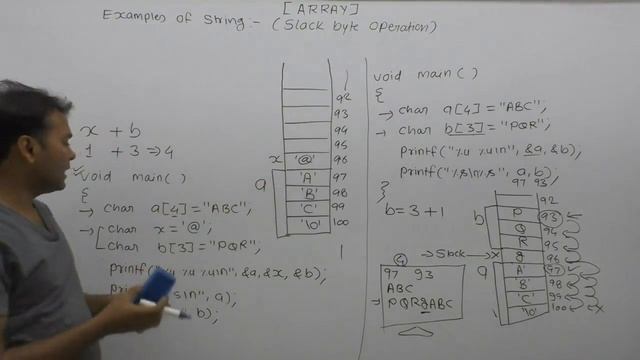 [ARRAY]
Examples of String:- (Slack byte operation)
x + b
1 + 3 => 4
void main()
{
→ char a[4]="ABC";
→ char x='@';
char b[3]="PQR";
printf("%u %u %u\n", &a, &x, &b);
s\n", a);
b);
92
93
94
95
x '@' 96
a 'A' 97
'B' 98
'C' 99
'\0' 100
void main()
{
→ char a[4]="ABC";
→ char b[3]="PQR";
printf("%u %u\n", &a, &b);
printf("%s\n%s", a, b);
97 93
}
b=3+1
92
b P 93
Q 94
R 95
→ Slack → x 8 96
a 'A' 97
'B' 98
'C' 99
'\0' 100 x
4
97 93
ABC
PQR8ABC